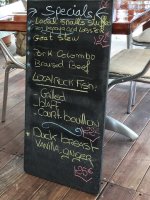 Specials
Local Snails Stuffed
Goat Stew
Pork Colombo
Braised Beef
Local Rock Fish
Grilled
blaff
Court bouillon
Duck breast
Vanilla, ginger